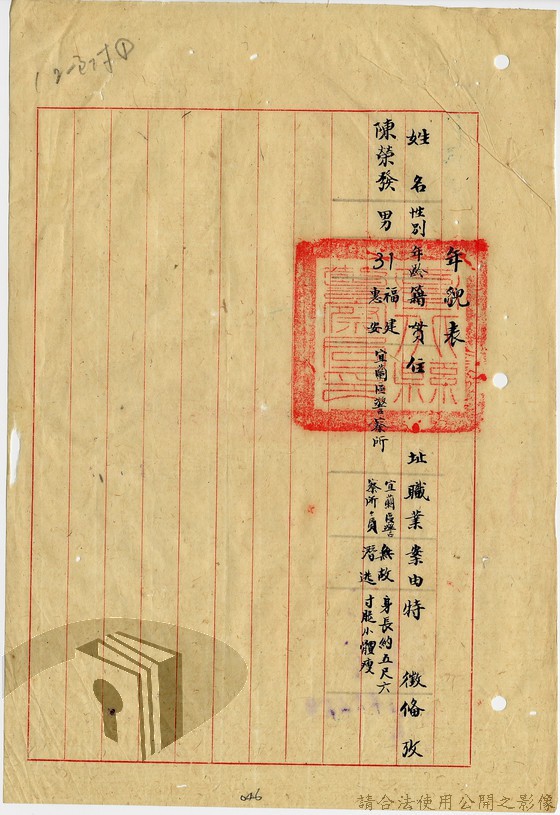 年貌表
姓名 性別 年齡 籍貫 住址 職業 案由 特徵 備攷
陳榮發 男 31 福建惠安 宜蘭區警察所 宜蘭區警察所員 無故潛逃 身長約五尺六寸臉小體瘦
046
請合法使用公開之影像